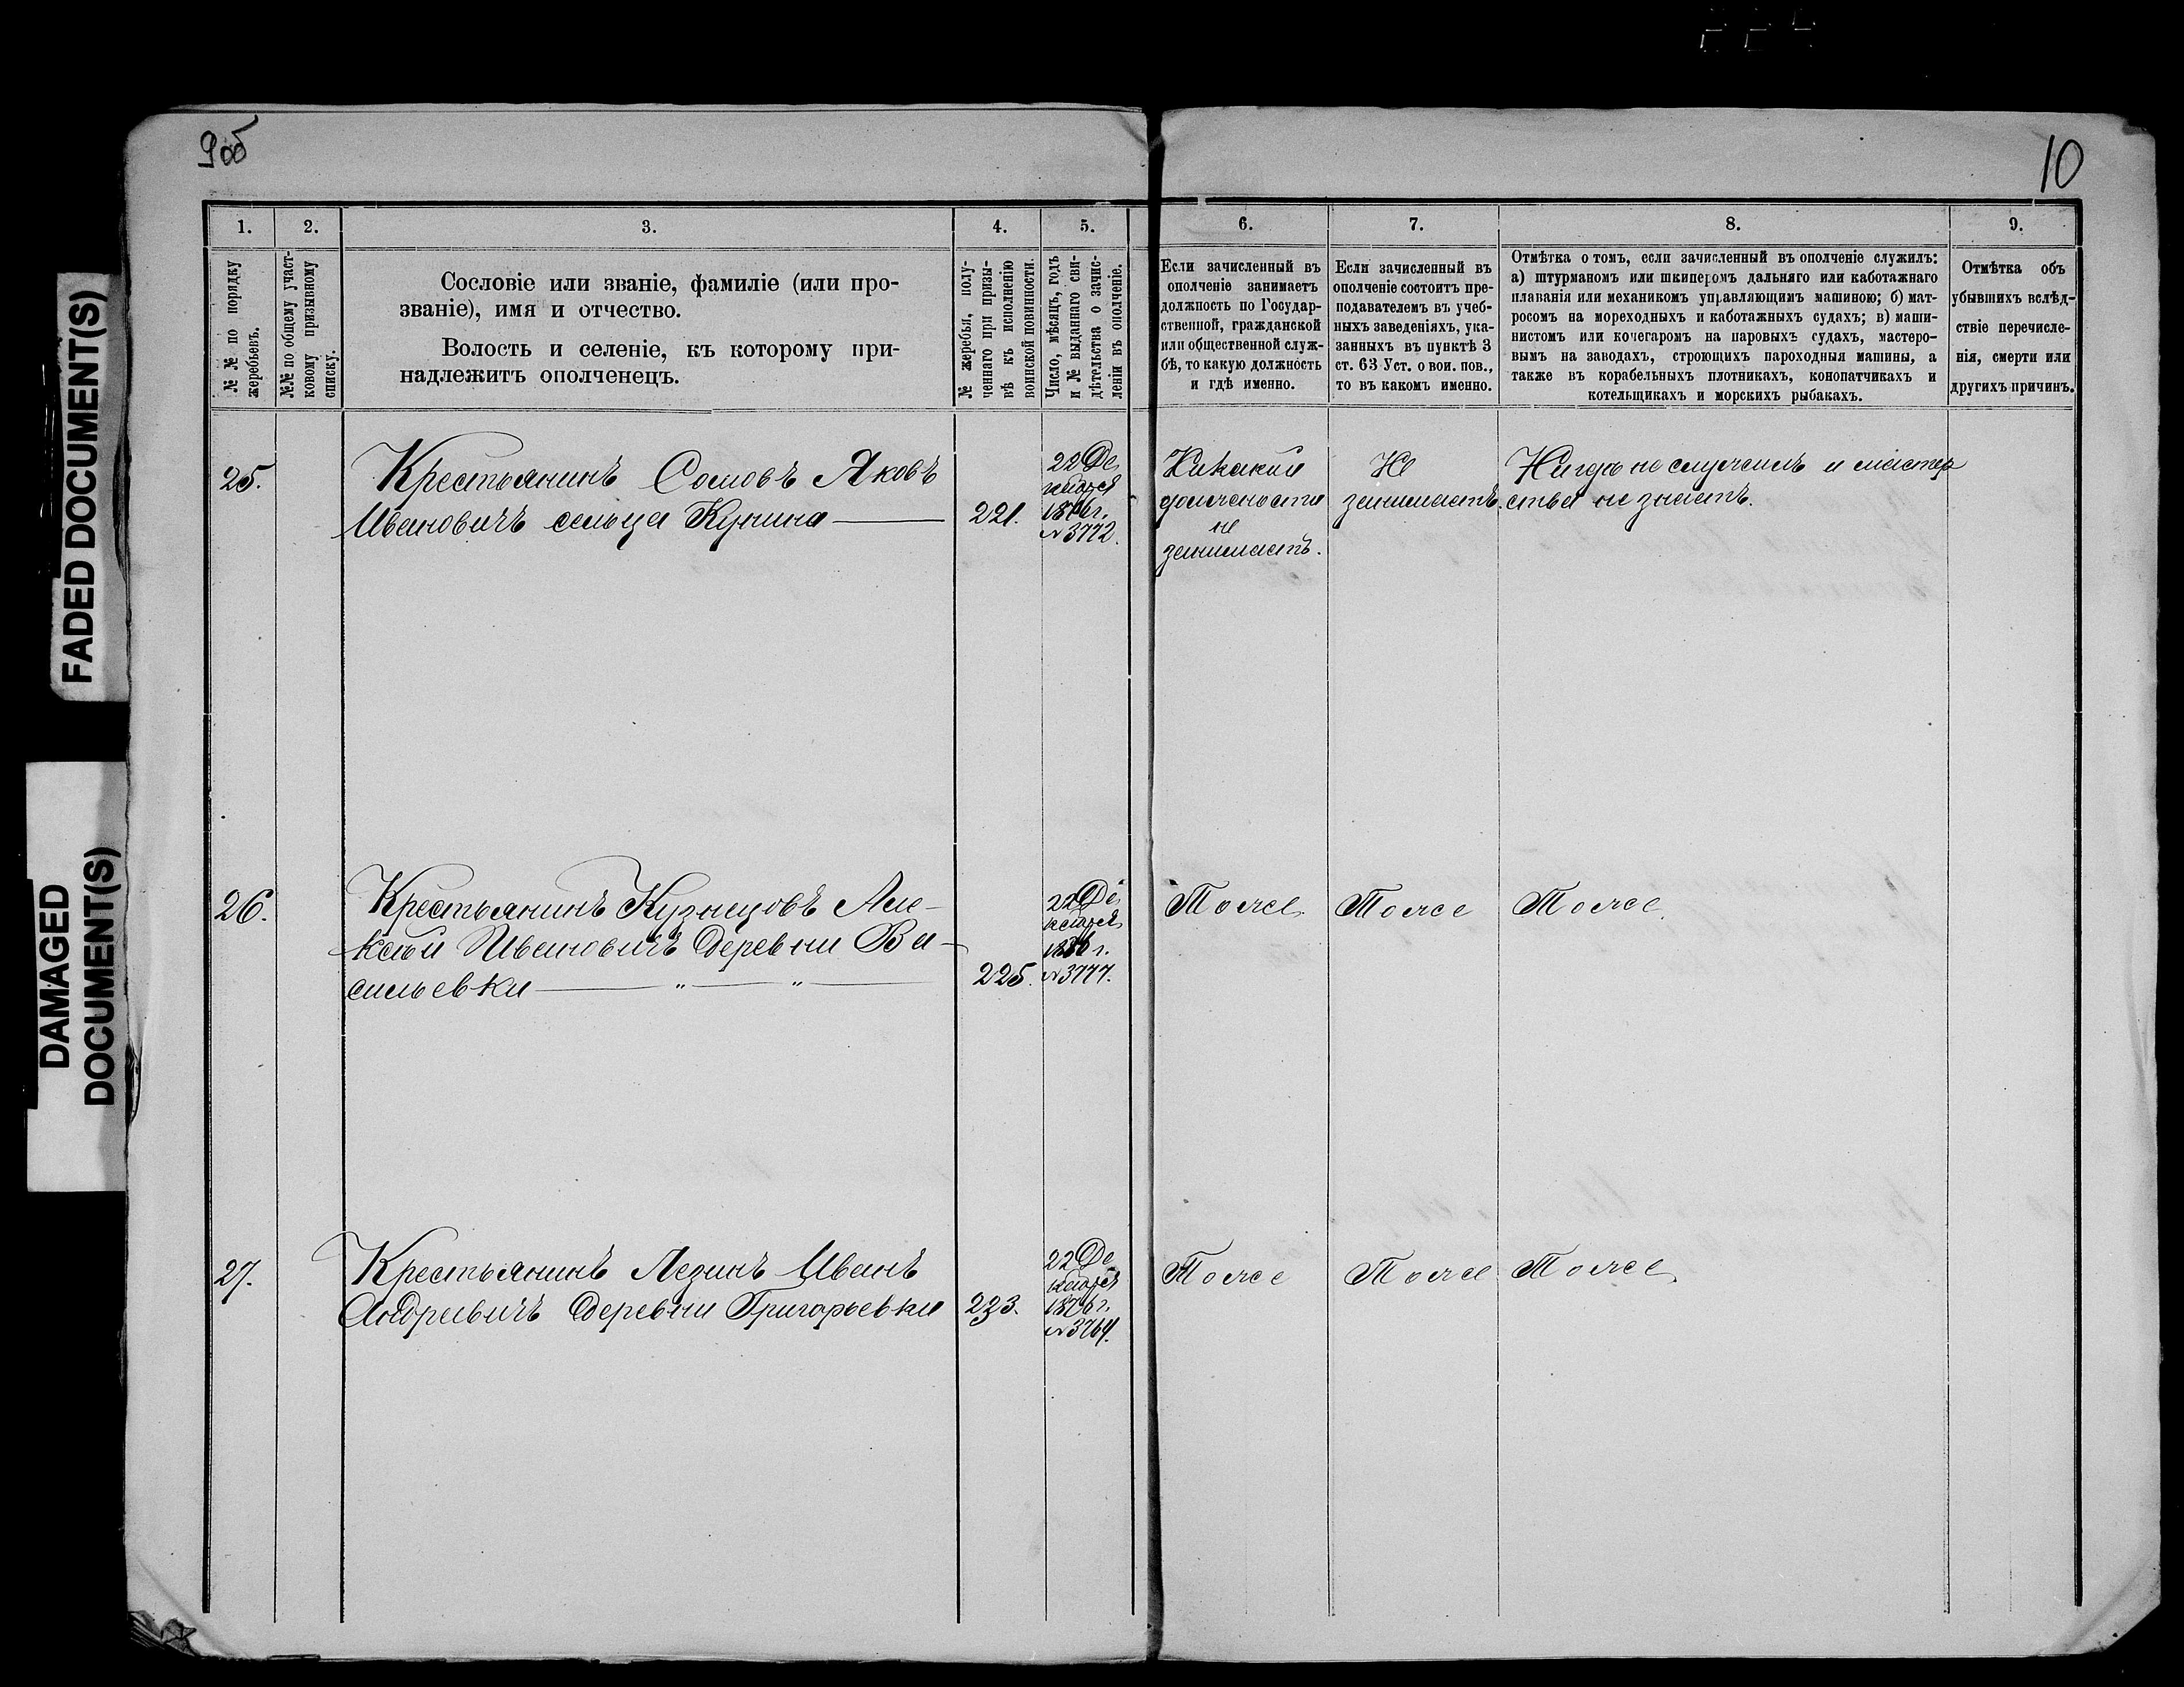 9об
10
FADED DOCUMENT(S)
DAMAGED
DOCUMENT(S)
1.
2.
3.
4.
5.
6.
7.
8.
9.
№ № по порядку
жеребьевъ.
№№ по общему участ-
ковому призывному
списку.
Сословіе или званіе, фамиліе (или про-
званіе), имя и отчество.
Волость и селеніе, къ которому при-
надлежитъ ополченецъ.
№ жеребья, полу-
ченнаго при призы-
вѣ къ исполненію
воинской повинности.
Число, мѣсяцъ, годъ
и № выданнаго сви-
дѣтельства о зачис-
леніи въ ополченіе.
Если зачисленный въ
ополченіе занимаетъ
должность по Государ-
ственной, гражданской
или общественной служ-
бѣ, то какую должность
и гдѣ именно.
Если зачисленный въ
ополченіе состоитъ пре-
подавателемъ въ учеб-
ныхъ заведеніяхъ, ука-
занныхъ въ пунктѣ 3
ст. 63 Уст. о вои. пов.,
то въ какомъ именно.
Отмѣтка о томъ, если зачисленный въ ополченіе служилъ:
а) штурманомъ или шкиперомъ дальняго или каботажнаго
плаванія или механикомъ управляющимъ машиною; б) мат-
росомъ на мореходныхъ и каботажныхъ судахъ; в) маши-
нистомъ или кочегаромъ на паровыхъ судахъ, мастеро-
вымъ на заводахъ, строющихъ пароходныя машины, а
также въ корабельныхъ плотникахъ, конопатчикахъ и
котельщикахъ и морскихъ рыбакахъ.
Отмѣтка объ
убывшихъ вслѣд-
ствіе перечисле-
нія, смерти или
другихъ причинъ.
25.
Крестьянинъ Сомовъ Яковъ
Ивановичъ сельца Кунина
221.
22 Де
кабря
1876 г.
№ 3772.
Никакой
должности
не
занимаетъ.
Не
занимаетъ.
Нигдѣ не служилъ и мастер
ства не знаетъ.
26.
Крестьянинъ Кузнецовъ Але-
ксѣй Ивановичъ деревни Ва-
сильевки — „ — „ —
225.
22 Де
кабря
г.
№ 3777.
Тоже
Тоже
Тоже.
27.
Крестьянинъ Лезинъ Иванъ
Андреевичъ деревни Григорьевки
223.
22 Де
кабря
1876 г.
№ 3764.
Тоже
Тоже
Тоже.